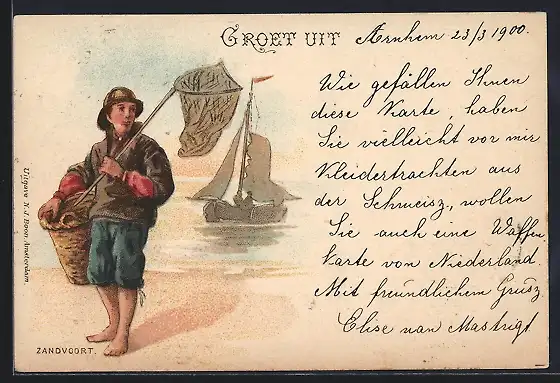 GROET UIT Arnhem 23/3 1900.
Wie gefällen Ihnen
diese Karte, haben
Sie vielleicht vor mir
Kleidertrachten aus
der Schweisz, wollen
Sie auch eine Waffen
Karte von Niederland.
Mit freundlichem Grusz.
Elise van Mastrigt
Uitgave N.J. Boon Amsterdam.
ZANDVOORT.